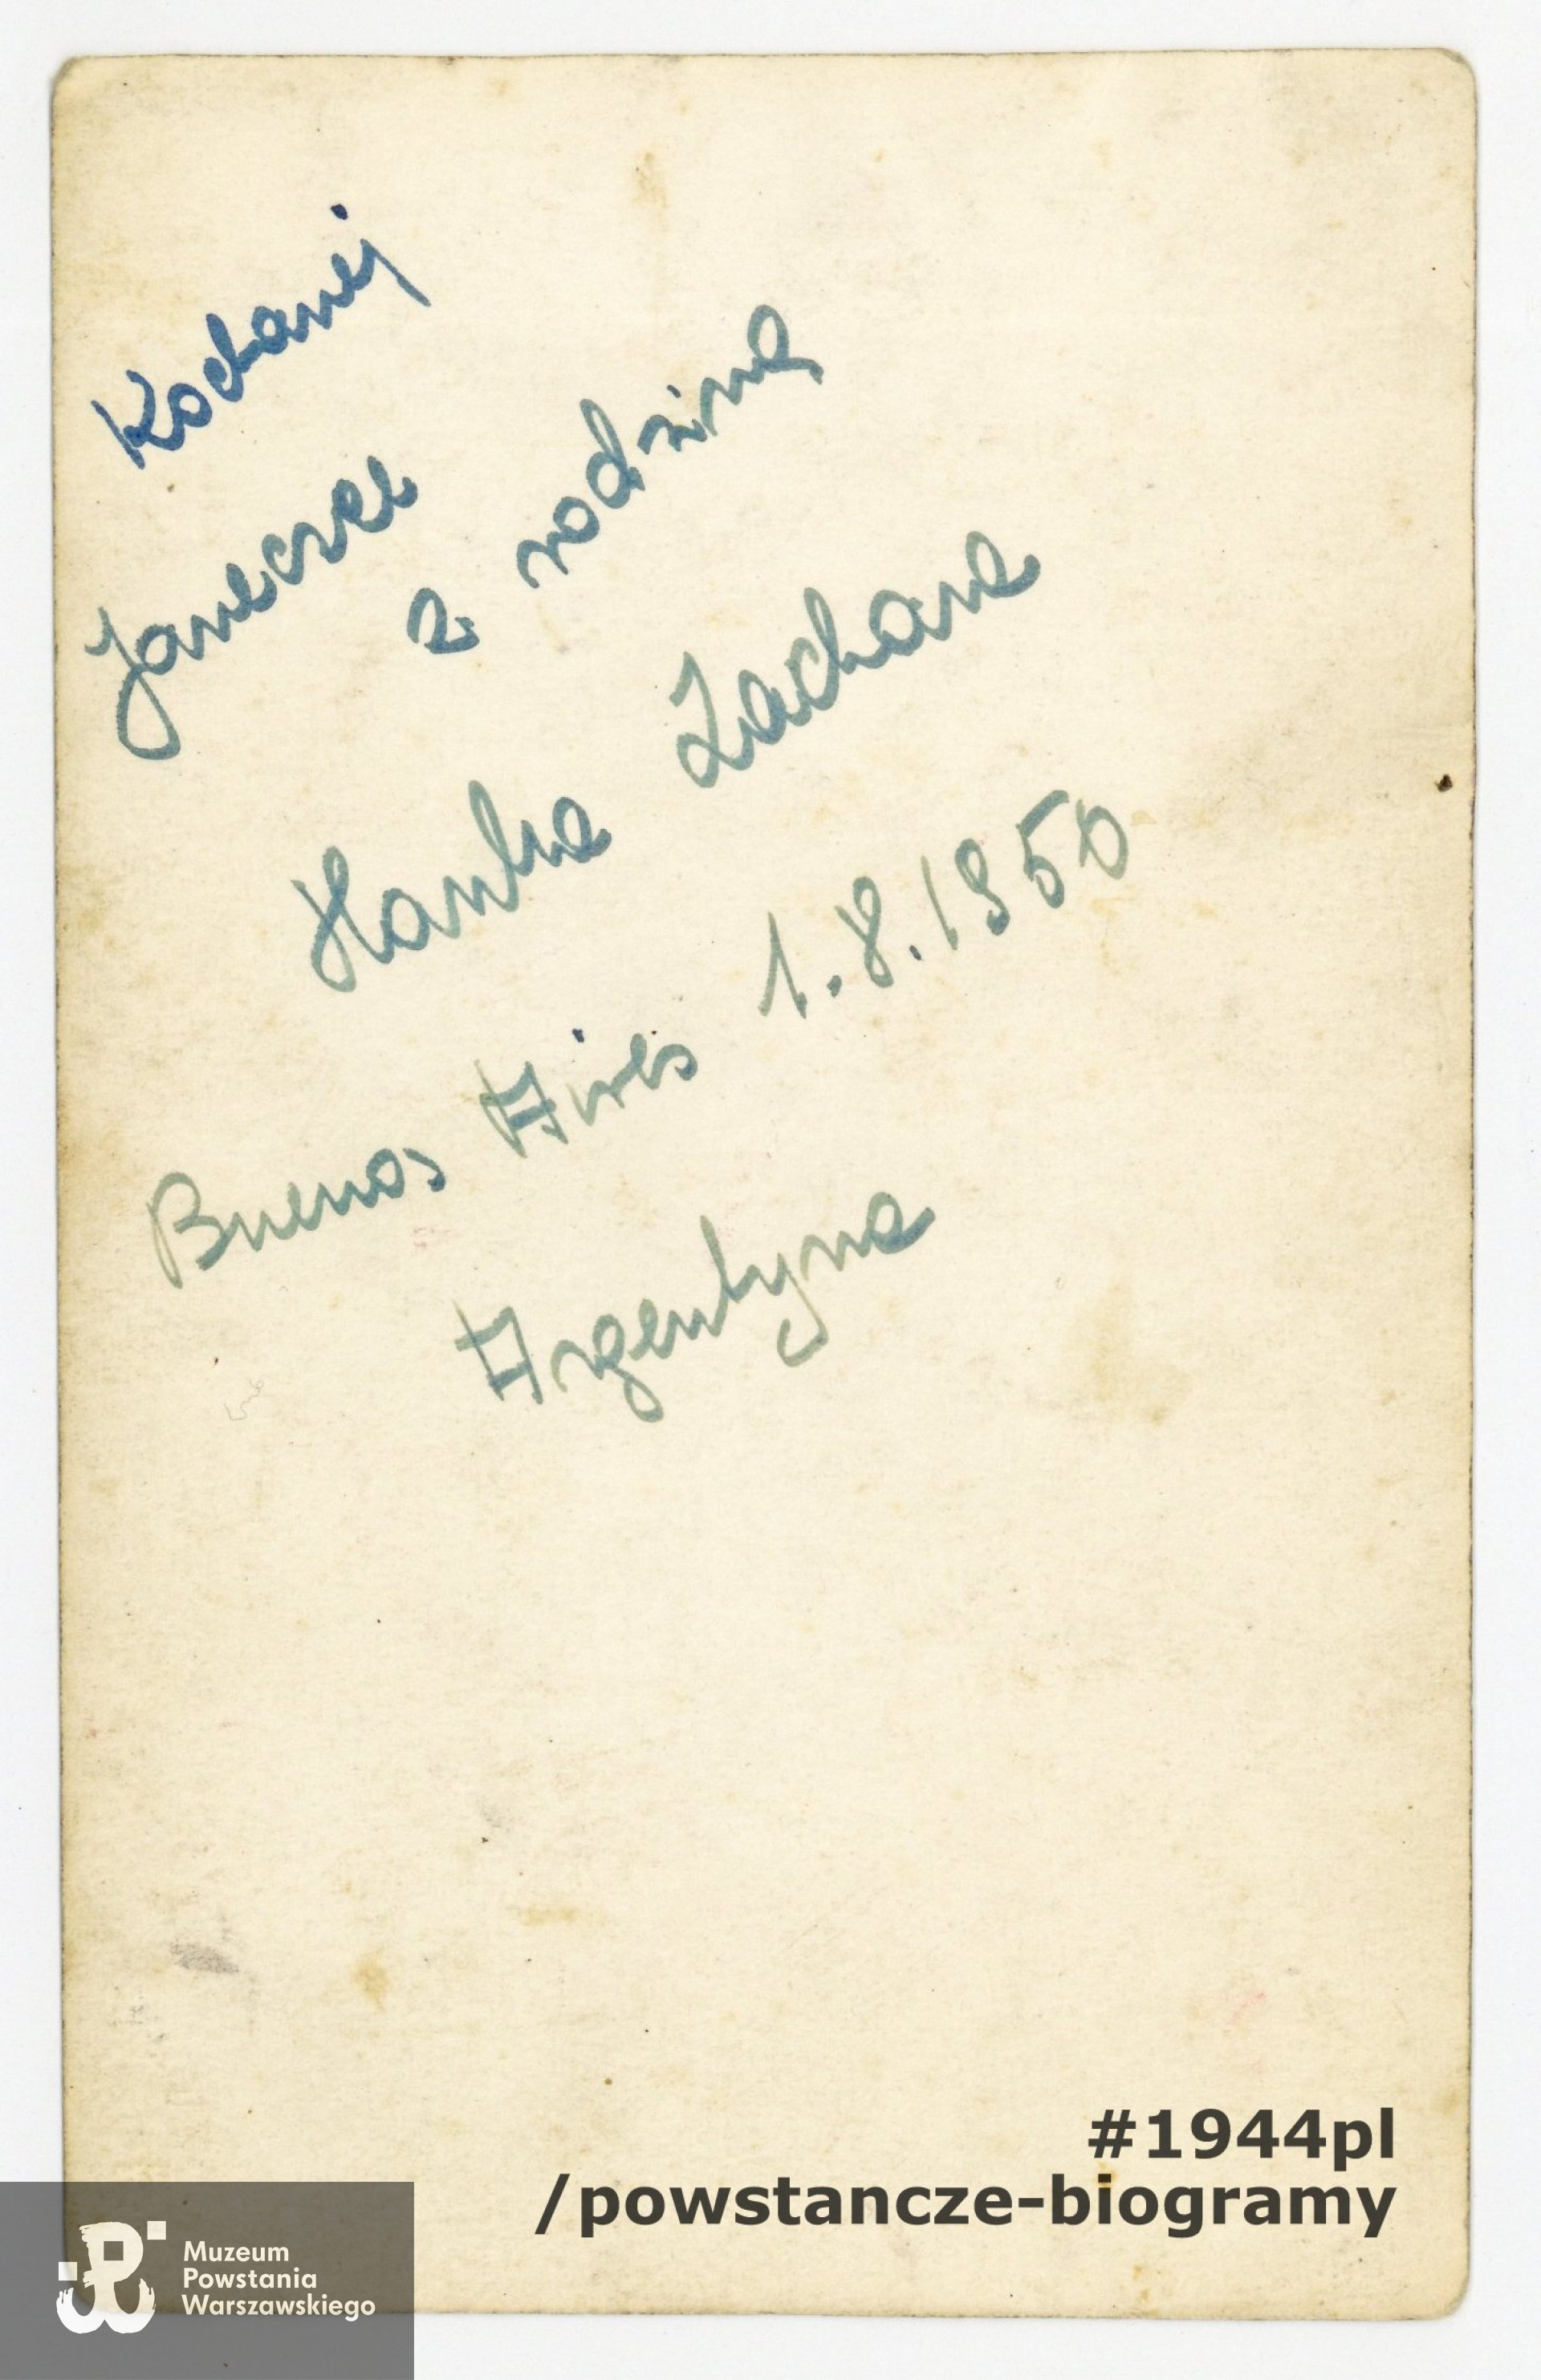 Kochanej
Janeczce
z rodziną
Hanka Zachara
Buenos Aires 1.8.1950
Argentyna
#1944pl
/powstancze-biogramy
Muzeum
Powstania
Warszawskiego